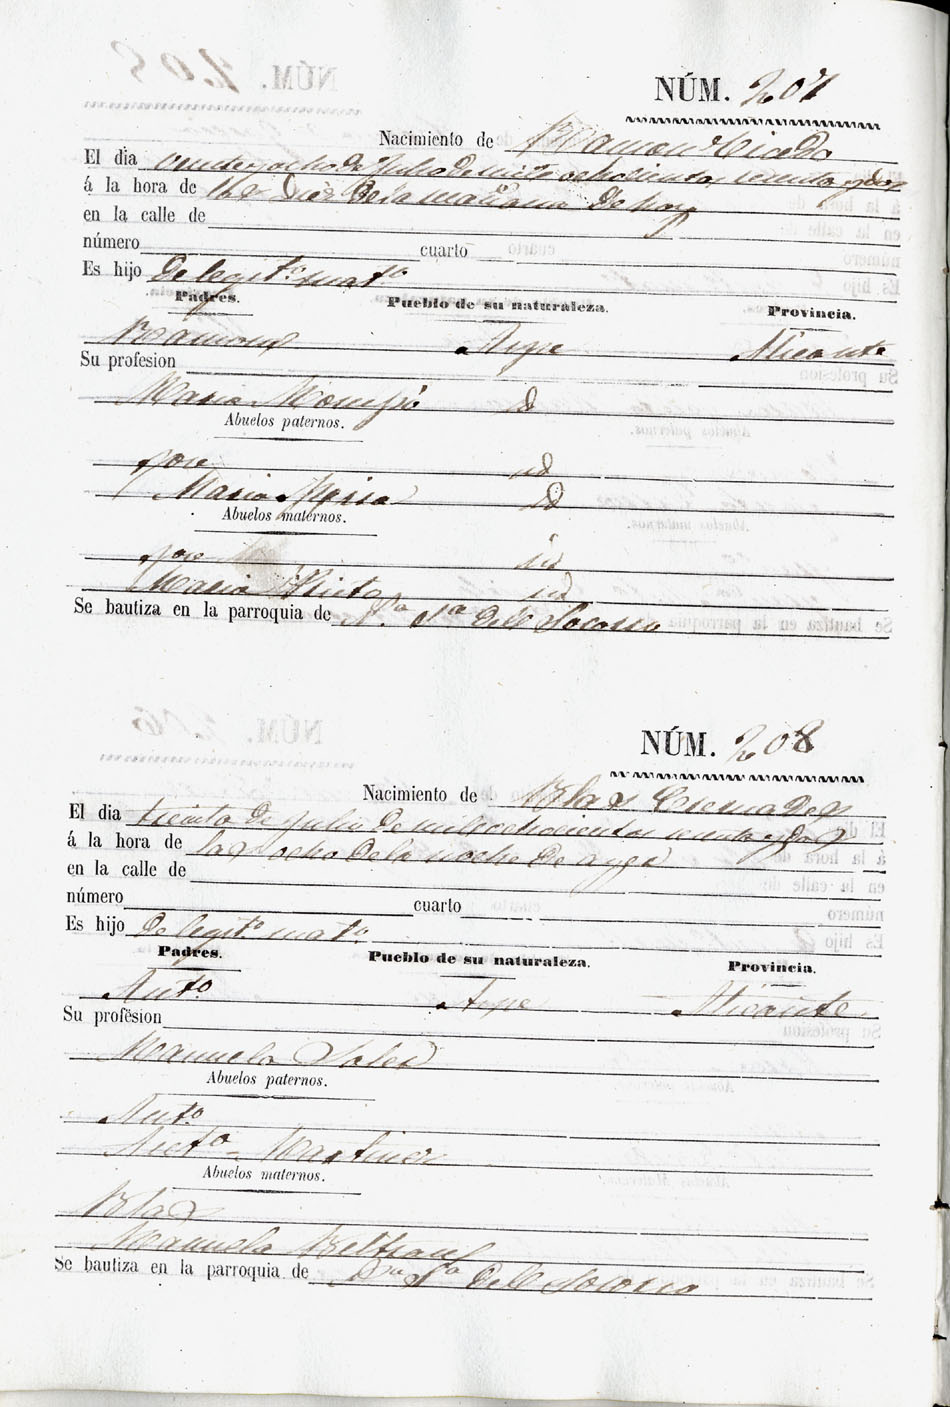 NÚM. 207
Nacimiento de Ramon Vicedo
El dia veinte y ocho de Julio de mil ochocientos sesenta y dos
á la hora de las Diez de la mañana de hoy
en la calle de
número cuarto
Es hijo de legit.º mat.º
Padres. Pueblo de su naturaleza. Provincia.
Ramon Aspe Alicante
Su profesion
Maria id
Abuelos paternos.
Jose id
Maria id
Abuelos maternos.
Jose id
Maria id
Se bautiza en la parroquia de N.ª S.ª del Socorro
NÚM. 208
Nacimiento de Blas Cremades
El dia treinta de Julio de mil ochocientos sesenta y dos
á la hora de las ocho de la noche de ayer
en la calle de
número cuarto
Es hijo de legit.º mat.º
Padres. Pueblo de su naturaleza. Provincia.
Ant.º Aspe Alicante
Su profesion
Manuela Soler
Abuelos paternos.
Ant.º
Ant.ª Martinez
Abuelos maternos.
Blas
Manuela Beltran
Se bautiza en la parroquia de N.ª S.ª del Socorro